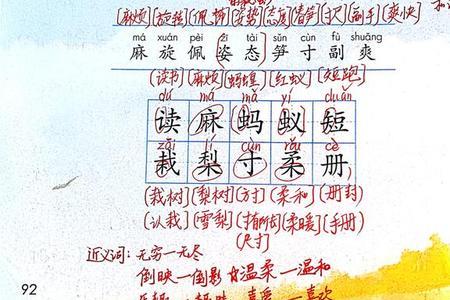 [麻烦][旋转][佩][姿势][态度][春笋][寸尺][副手][爽快]
má xuán pèi zī tài sǔn cùn fù shuāng
麻 旋 佩 姿 态 笋 寸 副 爽
(读书)[麻烦][蚂蝗][红蚁][短跑]
dú má mǎ yǐ duǎn
读 麻 蚂 蚁 短
zāi lí cùn róu cè
栽 梨 寸 柔 册
(栽树)[梨树][方寸][柔和][册封]
(认栽)[雪梨][柔暖][手册]
(尺寸)
近义词:无穷一无尽
倒映一倒影 温柔一温和
喜爱一喜欢
92